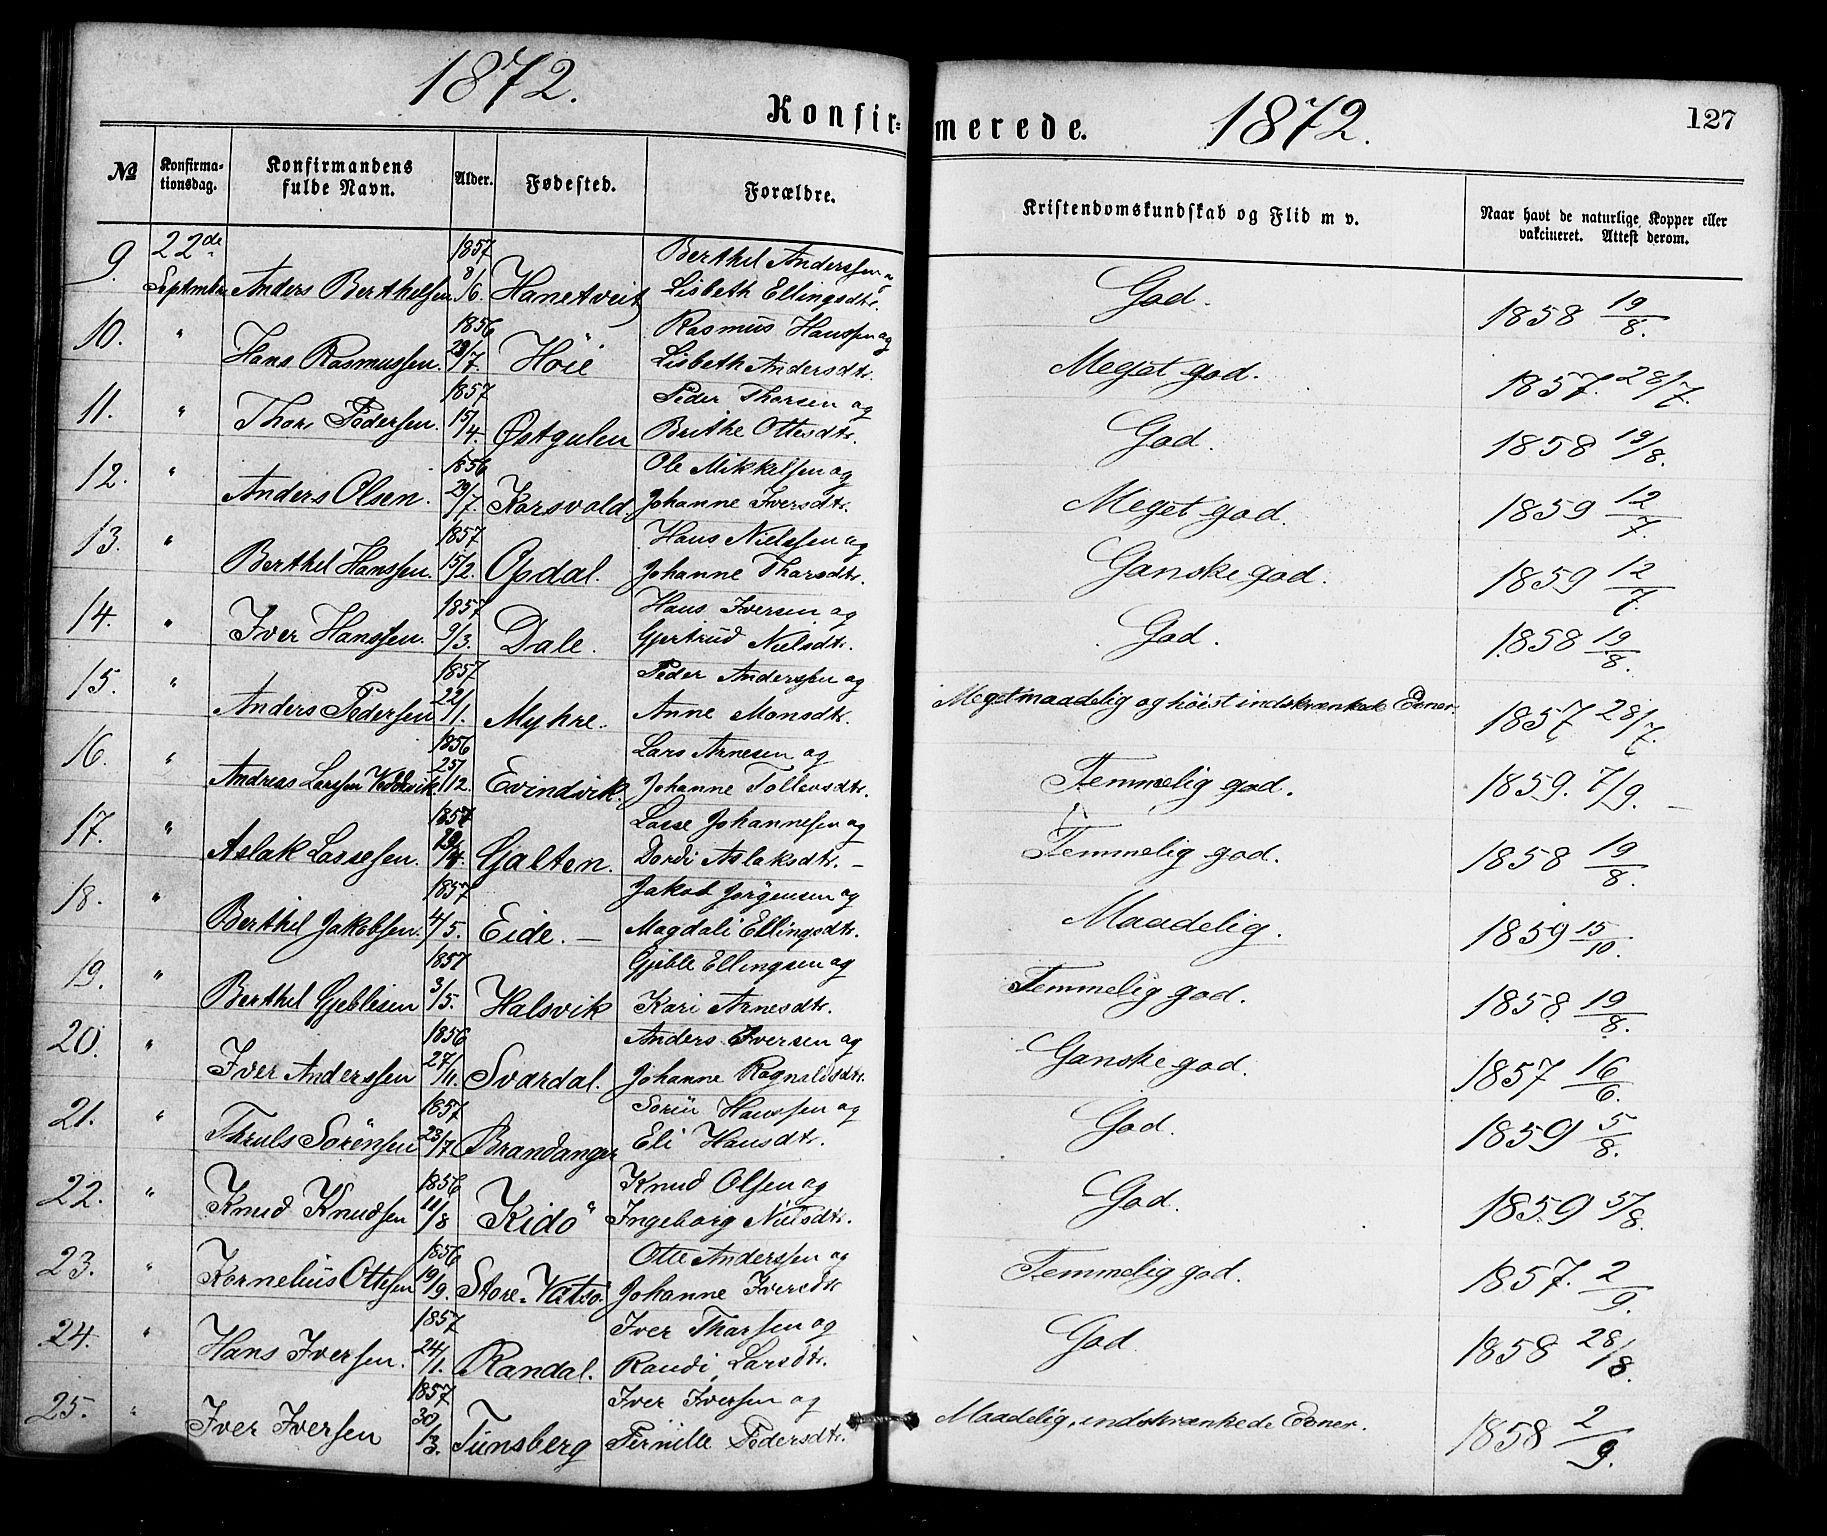 1872. 1872.
Konfir= merede. 127
№ Konfirma-tionsdag. Konfirmandens fulde Navn. Alder. Fødested. Forældre. Kristendomskundskab og Flid m v. Naar havt de naturlige Kopper eller vakcineret. Attest derom.
9. 22de 1857 Berthel Anderssen og
September Anders Berthelsen 8/6. Hanetveit Lisbeth Ellingsdtr. God. 1858 19/8.
10. " 1856 Rasmus Hanssen og
Hans Rasmussen. 29/7. Höie Lisbeth Andersdtr. Meget god. 1857. 28/7.
11. " 1857 Peder Thorsen og
Thore Pedersen. 15/4. Østgulen Brithe Ottesdtr. God. 1858 19/8.
12. " 1856 Ole Mikkelsen og
Anders Olsen. 29/7. Korsvold. Johanne Iversdtr. Meget god. 1859 12/7.
13. " 1857 Hans Nielssen og
Berthel Hanssen. 15/2. Opdal. Johanne Thorsdtr. Ganske god. 1859 12/7.
14. " 1857 Hans Iversen og
Iver Hanssen. 9/3. Dale. Gjertrud Nielsdtr. God. 1858 19/8.
15. " 1857 Peder Anderssen og
Anders Pedersen 22/1. Myhre. Anne Monsdtr. Meget maadelig og höist indskrænkede Evner. 1857 28/7.
16. " 1856 Lars Arnesen og
Andreas Larssen 25/12. Evindvik. Johanne Tollevsdtr. Temmelig god. 1859. 7/9. –
17. " 1857 Lasse Johannesen og
Aslak Lassesen. 29/4. Gjalten. Dordi Aslaksdtr. – Temmelig god. 1858 19/8.
18. " 1857 Jakob Jörgensen og
Berthel Jakobsen. 4/5. Eide. – Magdali Ellingsdtr. Maadelig. 1859 15/10.
19. " 1857 Gjeble Ellingsen og
Berthel Gjeblesen 3/5. Halsvik Kari Arnesdtr. Temmelig god. 1858. 19/8.
20. " 1856 Anders Iversen og
Iver Anderssen 27/11. Svardal. Johanne Ragnaldsdtr. Ganske god. 1857 16/6.
21. " 1857 Sören Hanssen og
Thruls Sörensen 23/7 Brandanger Eli Hansdtr. God. 1859 5/8.
22. " 1856 Knud Olsen og
Knud Knudsen 11/8 Kidö Ingeborg Nielsdtr. God. 1859 5/8.
23. " 1856 Otte Anderssen og
Kornelius Ottesen 19/9. Store-Vatsö. Johanne Iversdtr Temmelig god. 1857. 2/9.
24. " 1857 Iver Thorsen og
Hans Iversen. 24/1. Randal. Randi Larsdtr. God. 1858 28/8.
25. " 1857 Iver Iversen og
Iver Iversen 30/3. Tunsberg Pernille Pedersdtr. Maadelig, indskrænkede Evner. 1858 2/9.